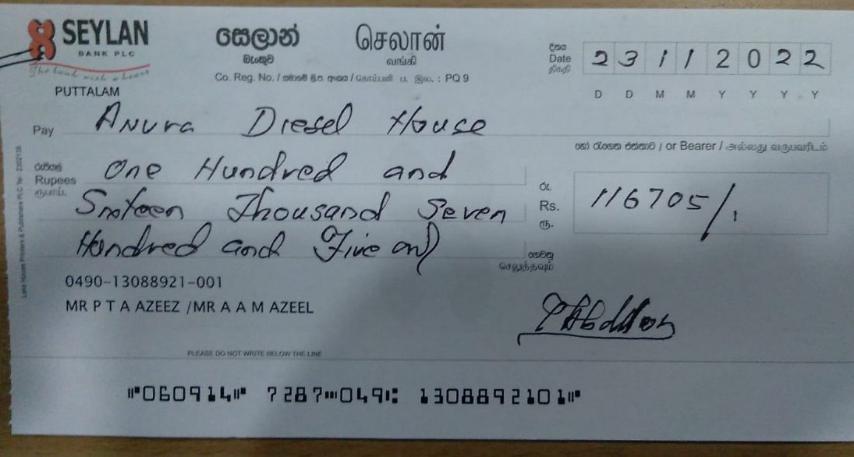 SEYLAN
BANK PLC
The bank with a heart
සෙලාන් செலான்
බැංකුව வங்கி
Co. Reg. No. / සමාගම් ලියා. අංකය / கொம்பனி ப. இல. : PQ 9
දිනය
Date 2 3 1 1 2 0 2 2
திகதி D D M M Y Y Y Y
PUTTALAM
Pay Anura Diesel House
හෝ රැගෙන එන්නාට / or Bearer / அல்லது வருபவரிடம்
රුපියල්
Rupees One Hundred and
ரூபாய்
Sixteen Thousand Seven
Hundred and Five only
රු.
Rs. 116705/.
ரூ.
ගෙවනු
செலுத்தவும்
0490-13088921-001
MR P T A AZEEZ /MR A A M AZEEL
PLEASE DO NOT WRITE BELOW THE LINE
⑈060914⑈ 7287⑉049⑆ 1308892101⑈